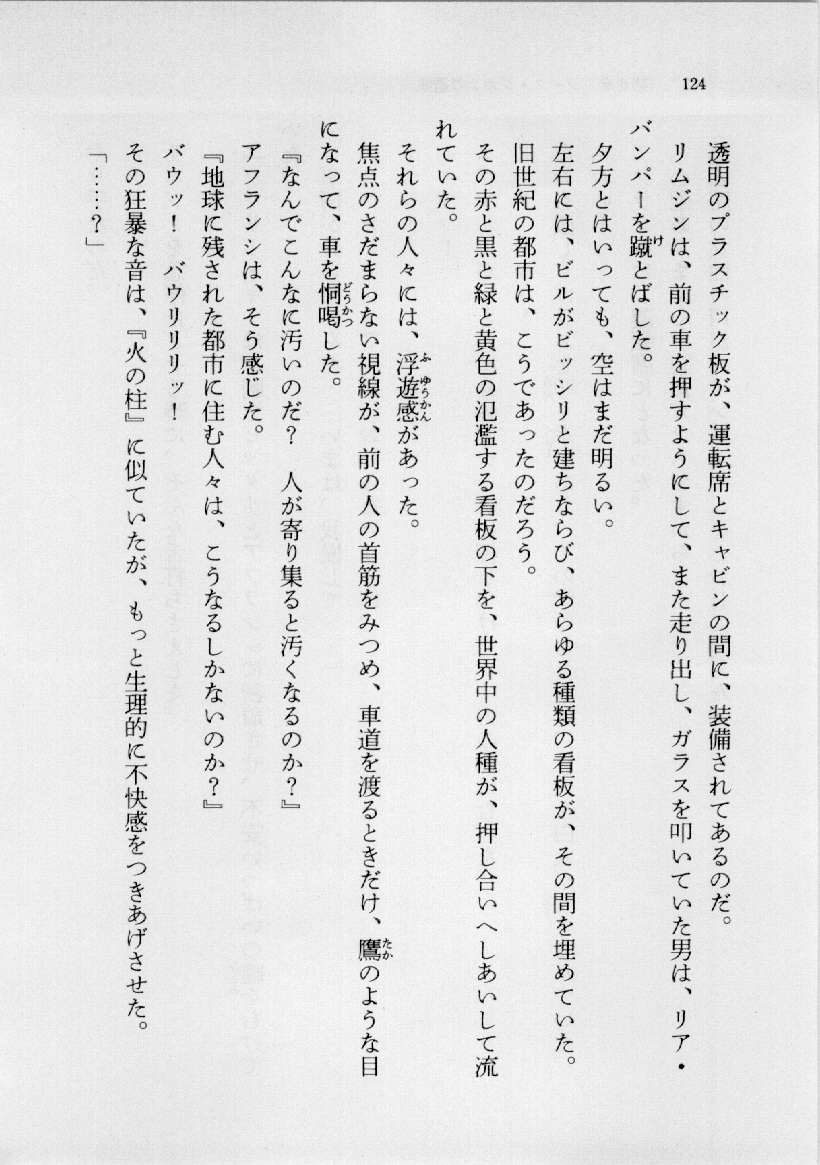 124
透明のプラスチック板が、運転席とキャビンの間に、装備されてあるのだ。
リムジンは、前の車を押すようにして、また走り出し、ガラスを叩いていた男は、リア・
バンパーを蹴とばした。
夕方とはいっても、空はまだ明るい。
左右には、ビルがビッシリと建ちならび、あらゆる種類の看板が、その間を埋めていた。
旧世紀の都市は、こうであったのだろう。
その赤と黒と緑と黄色の氾濫する看板の下を、世界中の人種が、押し合いへしあいして流
れていた。
それらの人々には、浮遊感があった。
焦点のさだまらない視線が、前の人の首筋をみつめ、車道を渡るときだけ、鷹のような目
になって、車を恫喝した。
『なんでこんなに汚いのだ？　人が寄り集ると汚くなるのか？』
アフランシは、そう感じた。
『地球に残された都市に住む人々は、こうなるしかないのか？』
バウッ！　バウリリリッ！
その狂暴な音は、『火の柱』に似ていたが、もっと生理的に不快感をつきあげさせた。
「……？」